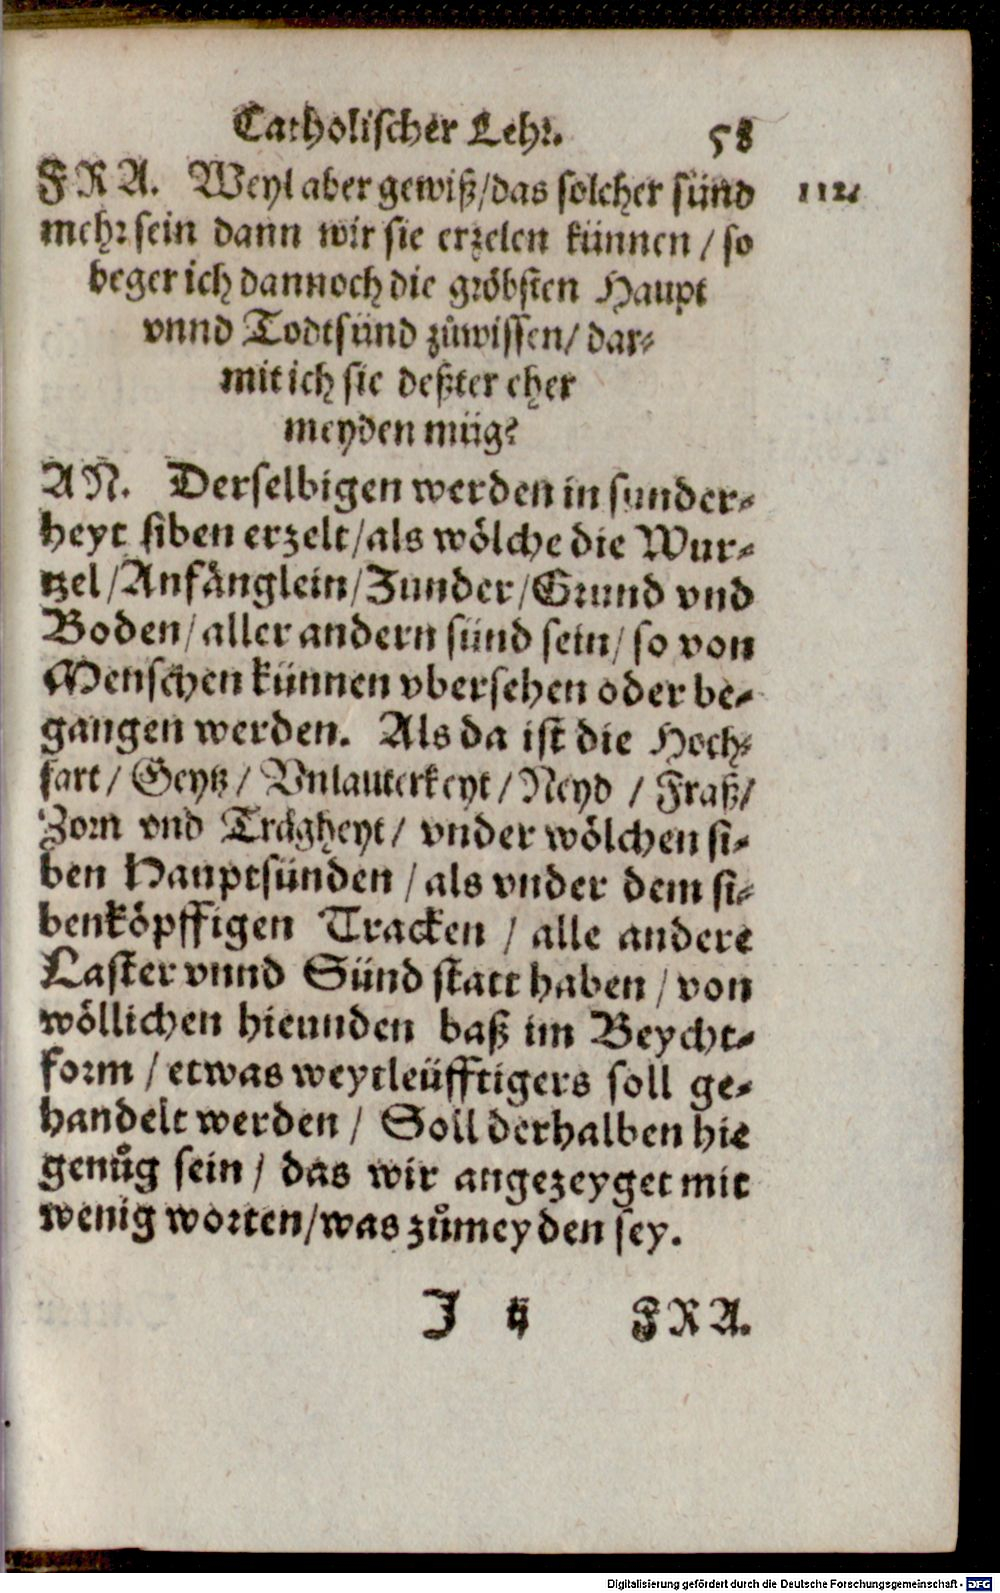 Catholischer Lehr. 58
FRA. Weyl aber gewiß/das solcher sünd 112.
mehr sein dann wir sie erzelen künnen / so
beger ich dannoch die gröbsten Haupt
vnnd Todtsünd zůwissen/ dar⸗
mit ich sie deßter eher
meyden müg?
AN. Derselbigen werden in sunder⸗
heyt siben erzelt/als wölche die Wur⸗
tzel/Anfänglein/Zunder/Grund vnd
Boden/aller andern sünd sein/ so von
Menschen künnen vbersehen oder be⸗
gangen werden. Als da ist die Hoch⸗
fart/ Geytz/ Vnlauterkeyt/Neyd / Fraß/
Zorn vnd Trägheyt/ vnder wölchen si⸗
ben Hauptsünden /als vnder dem si⸗
benköpffigen Tracken / alle andere
Laster vnnd Sünd statt haben / von
wöllichen hieunden baß im Beycht⸗
form /etwas weytleüfftigers soll ge⸗
handelt werden / Soll derhalben hie
genůg sein / das wir angezeyget mit
wenig worten/was zůmeyden sey.
J ij FRA.
Digitalisierung gefördert durch die Deutsche Forschungsgemeinschaft - DFG